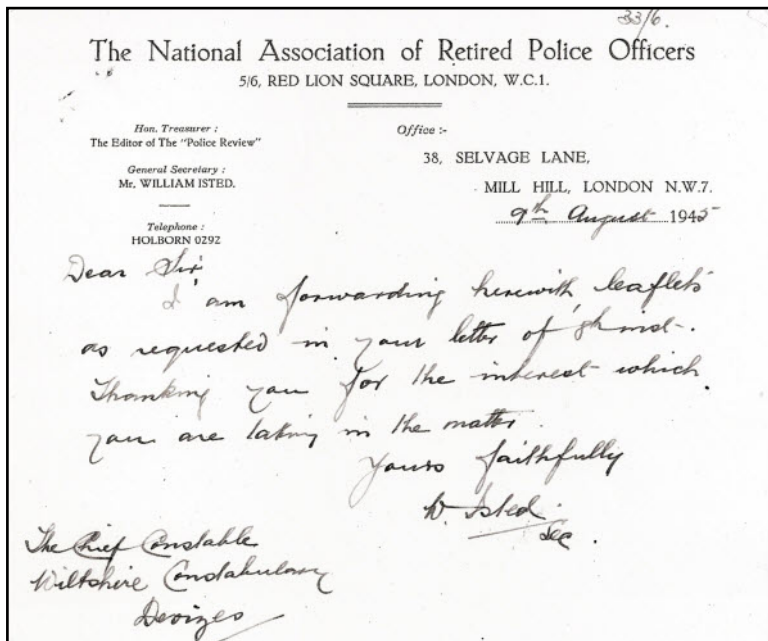 33/6.
The National Association of Retired Police Officers
5/6, RED LION SQUARE, LONDON, W.C.1.
Hon. Treasurer :
The Editor of The "Police Review"
General Secretary :
Mr. WILLIAM ISTED.
Telephone :
HOLBORN 0292
Office :-
38, SELVAGE LANE,
MILL HILL, LONDON N.W.7.
9th August 1945
Dear Sir
I am forwarding herewith, leaflets
as requested in your letter of 8th inst.
Thanking you for the interest which
you are taking in the matter.
Yours faithfully
W. Isted.
Sec.
The Chief Constable
Wiltshire Constabulary
Devizes